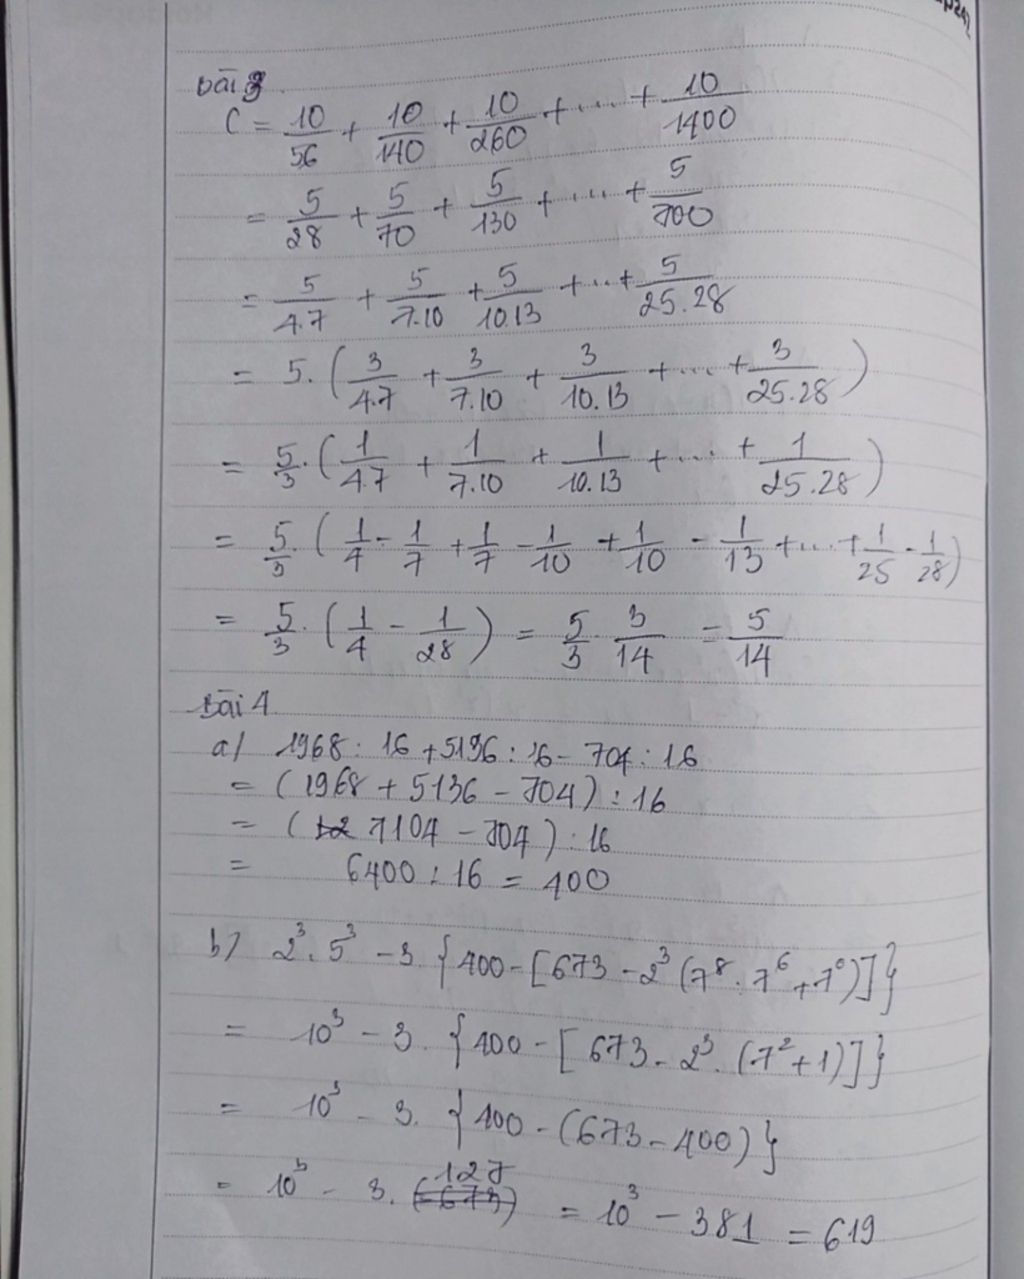 Bài 3
C = 10/56 + 10/140 + 10/260 + .... + 10/1400
= 5/28 + 5/70 + 5/130 + .... + 5/700
= 5/4.7 + 5/7.10 + 5/10.13 + ... + 5/25.28
= 5. (3/4.7 + 3/7.10 + 3/10.13 + .... + 3/25.28)
= 5/3. (1/4.7 + 1/7.10 + 1/10.13 + .... + 1/25.28)
= 5/3. (1/4 - 1/7 + 1/7 - 1/10 + 1/10 - 1/13 + ... + 1/25 - 1/28)
= 5/3. (1/4 - 1/28) = 5/3 . 3/14 = 5/14
Bài 4
a/ 1968 : 16 + 5136 : 16 - 704 : 16
= (1968 + 5136 - 704) : 16
= (7104 - 704) : 16
= 6400 : 16 = 400
b/ 2³. 5³ - 3. {400 - [673 - 2³ (7⁸ : 7⁶ + 7⁰)]}
= 10³ - 3. {400 - [673 - 2³. (7² + 1)]}
= 10³ - 3. {400 - (673 - 400)}
= 10³ - 3. 127 = 10³ - 381 = 619